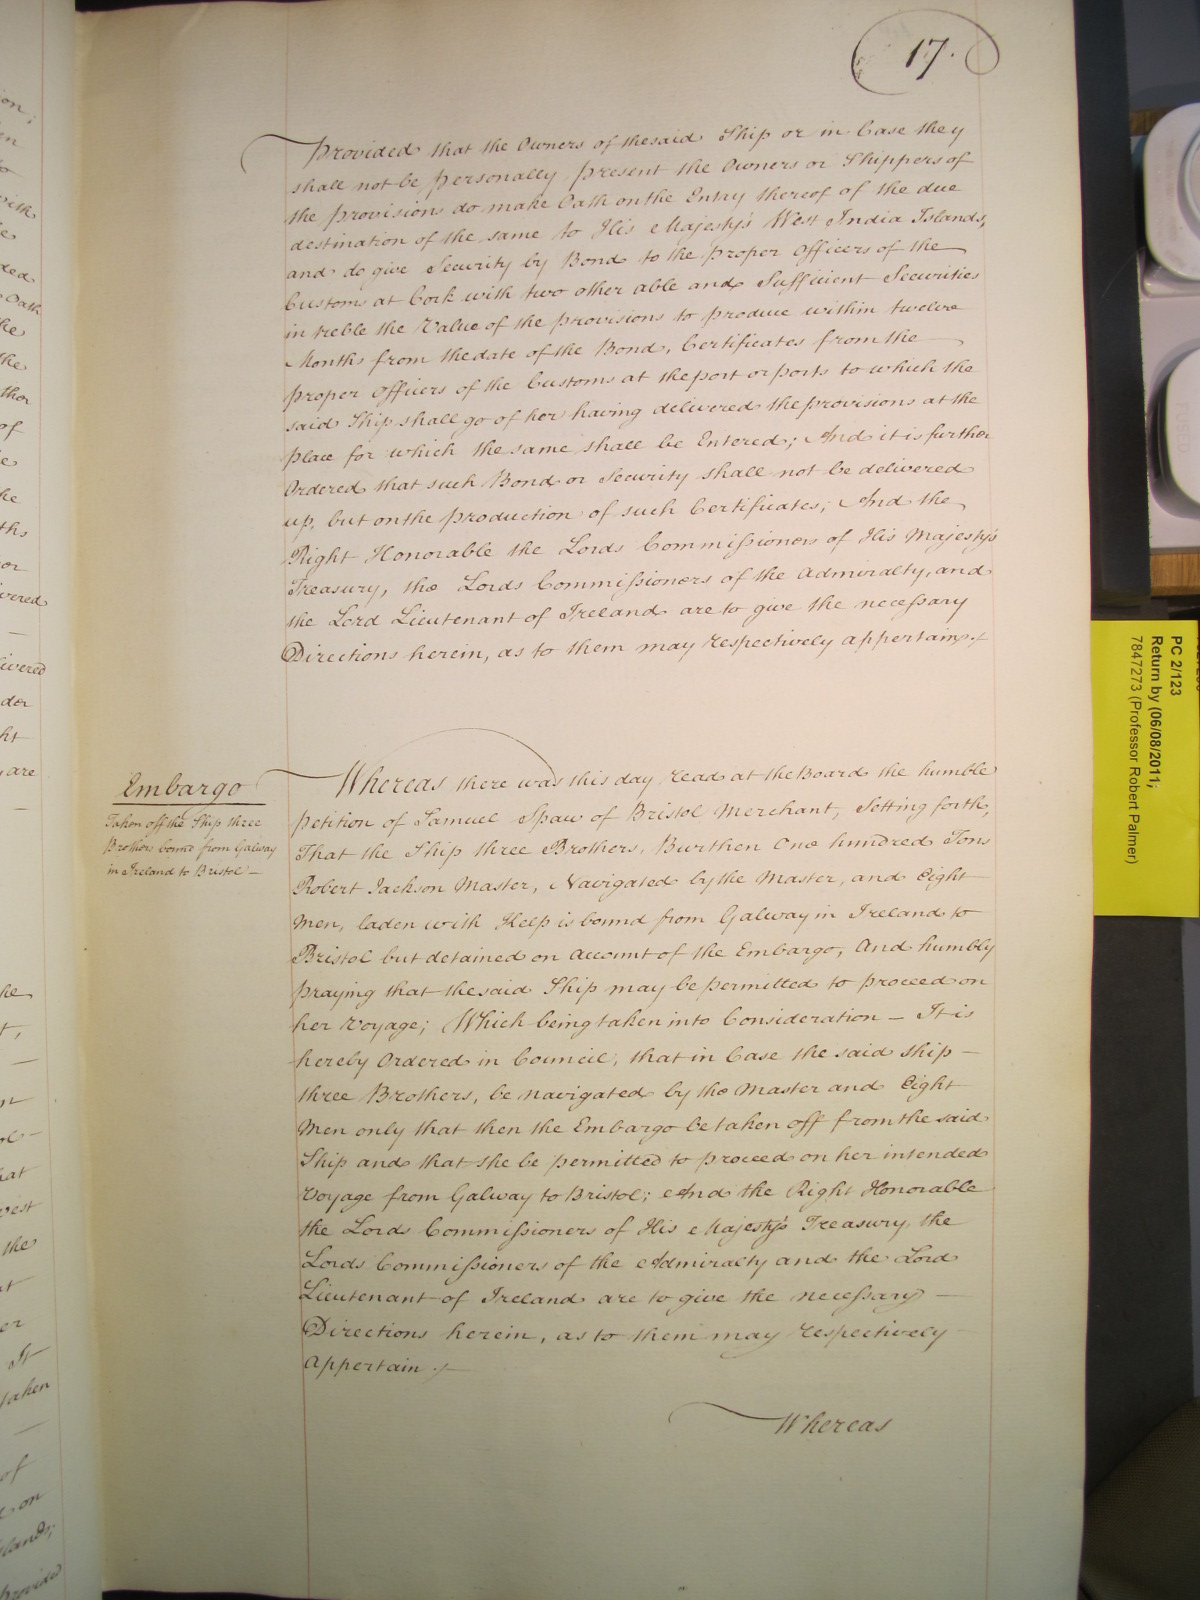 17.
Provided that the Owners of the said Ship or in Case they
shall not be personally present the Owners or Shippers of
the provisions do make Oath on the Entry thereof of the due
destination of the same to His Majesty's West India Islands,
and do give Security by Bond to the proper Officers of the
Customs at Cork with two other able and Sufficient Securities
in treble the Value of the provisions to produce within twelve
Months from the date of the Bond, Certificates from the
proper Officers of the Customs at the port or ports to which the
said Ship shall go of her having delivered the provisions at the
place for which the same shall be Entered; And it is further
Ordered that such Bond or Security shall not be delivered
up, but on the production of such Certificates; And the
Right Honorable the Lords Commissioners of His Majesty's
Treasury, the Lords Commissioners of the Admiralty, and
the Lord Lieutenant of Ireland are to give the necessary
Directions herein, as to them may respectively appertain.
Embargo
Taken off the Ship three
Brothers bound from Galway
in Ireland to Bristol —
Whereas there was this day read at the Board the humble
petition of Samuel Span of Bristol Merchant, Setting forth,
That the Ship three Brothers, Burthen One hundred Tons
Robert Jackson Master, Navigated by the Master, and Eight
Men, laden with Kelp is bound from Galway in Ireland to
Bristol but detained on account of the Embargo, And humbly
praying that the said Ship may be permitted to proceed on
her voyage; Which being taken into Consideration — It is
hereby Ordered in Council, that in Case the said Ship —
three Brothers, be navigated by the Master and Eight
Men only that then the Embargo be taken off from the said
Ship and that she be permitted to proceed on her intended
voyage from Galway to Bristol; And the Right Honorable
the Lords Commissioners of His Majesty's Treasury, the
Lords Commissioners of the Admiralty and the Lord
Lieutenant of Ireland are to give the necessary —
Directions herein, as to them may respectively
appertain.
Whereas
PC 2/123
Return by (06/08/2011;
7847273 (Professor Robert Palmer)